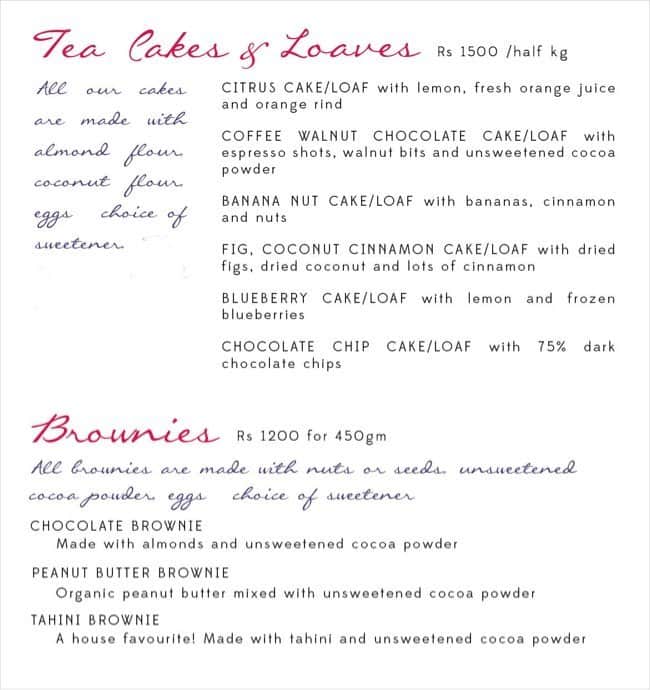 Tea Cakes & Loaves Rs 1500 /half kg
All our cakes
are made with
almond flour
coconut flour
eggs choice of
sweetener
CITRUS CAKE/LOAF with lemon, fresh orange juice
and orange rind
COFFEE WALNUT CHOCOLATE CAKE/LOAF with
espresso shots, walnut bits and unsweetened cocoa
powder
BANANA NUT CAKE/LOAF with bananas, cinnamon
and nuts
FIG, COCONUT CINNAMON CAKE/LOAF with dried
figs, dried coconut and lots of cinnamon
BLUEBERRY CAKE/LOAF with lemon and frozen
blueberries
CHOCOLATE CHIP CAKE/LOAF with 75% dark
chocolate chips
Brownies Rs 1200 for 450gm
All brownies are made with nuts or seeds, unsweetened
cocoa powder, eggs choice of sweetener
CHOCOLATE BROWNIE
Made with almonds and unsweetened cocoa powder
PEANUT BUTTER BROWNIE
Organic peanut butter mixed with unsweetened cocoa powder
TAHINI BROWNIE
A house favourite! Made with tahini and unsweetened cocoa powder